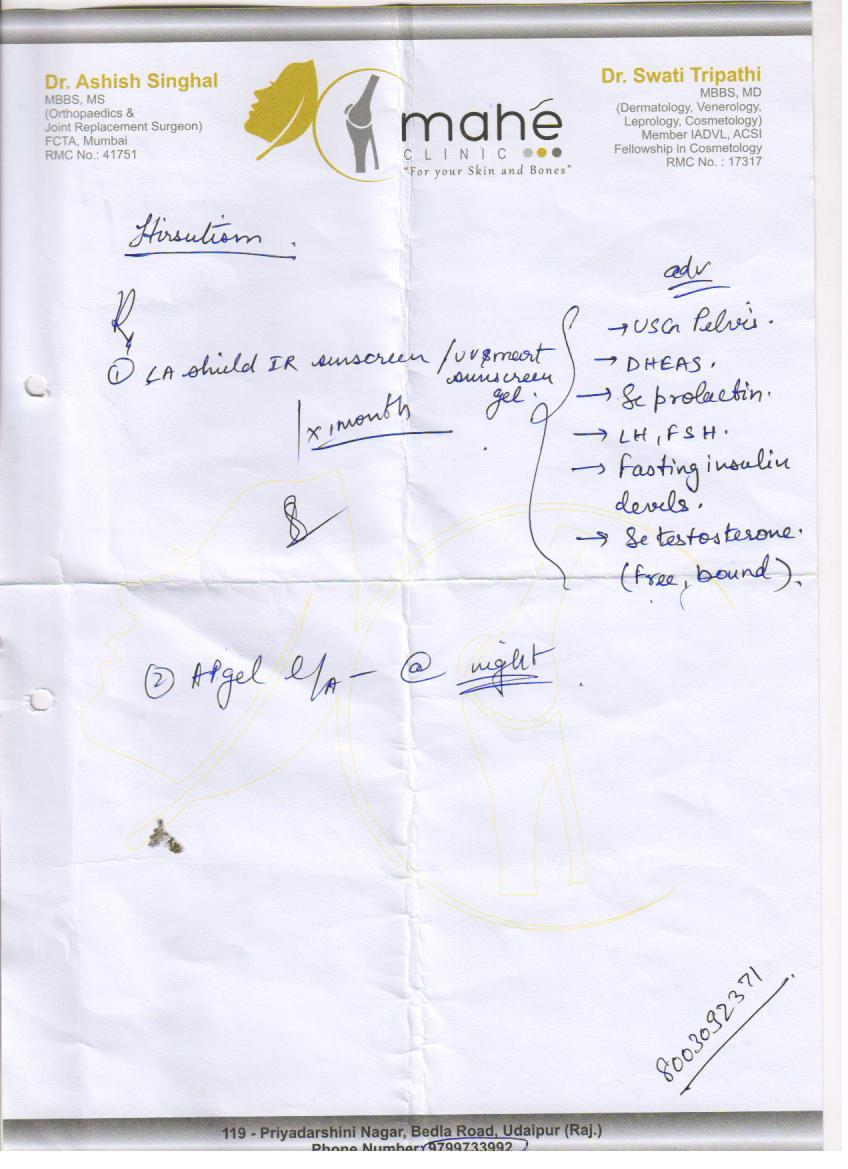 Dr. Ashish Singhal
MBBS, MS
(Orthopaedics &
Joint Replacement Surgeon)
FCTA, Mumbai
RMC No.: 41751
mahé
CLINIC
"For your Skin and Bones"
Dr. Swati Tripathi
MBBS, MD
(Dermatology, Venerology,
Leprology, Cosmetology)
Member IADVL, ACSI
Fellowship in Cosmetology
RMC No. : 17317
Hirsutism.
R
① LA shield IR sunscreen / UV smart
sunscreen
gel.
x 1 month
adv
→ USG Pelvis.
→ DHEAS.
→ Se prolactin.
→ LH, FSH.
→ Fasting insulin
levels.
→ Se testosterone.
(free, bound).
② APgel l/A - @ night.
8003092371
119 - Priyadarshini Nagar, Bedla Road, Udaipur (Raj.)
Phone Number: 9799733992